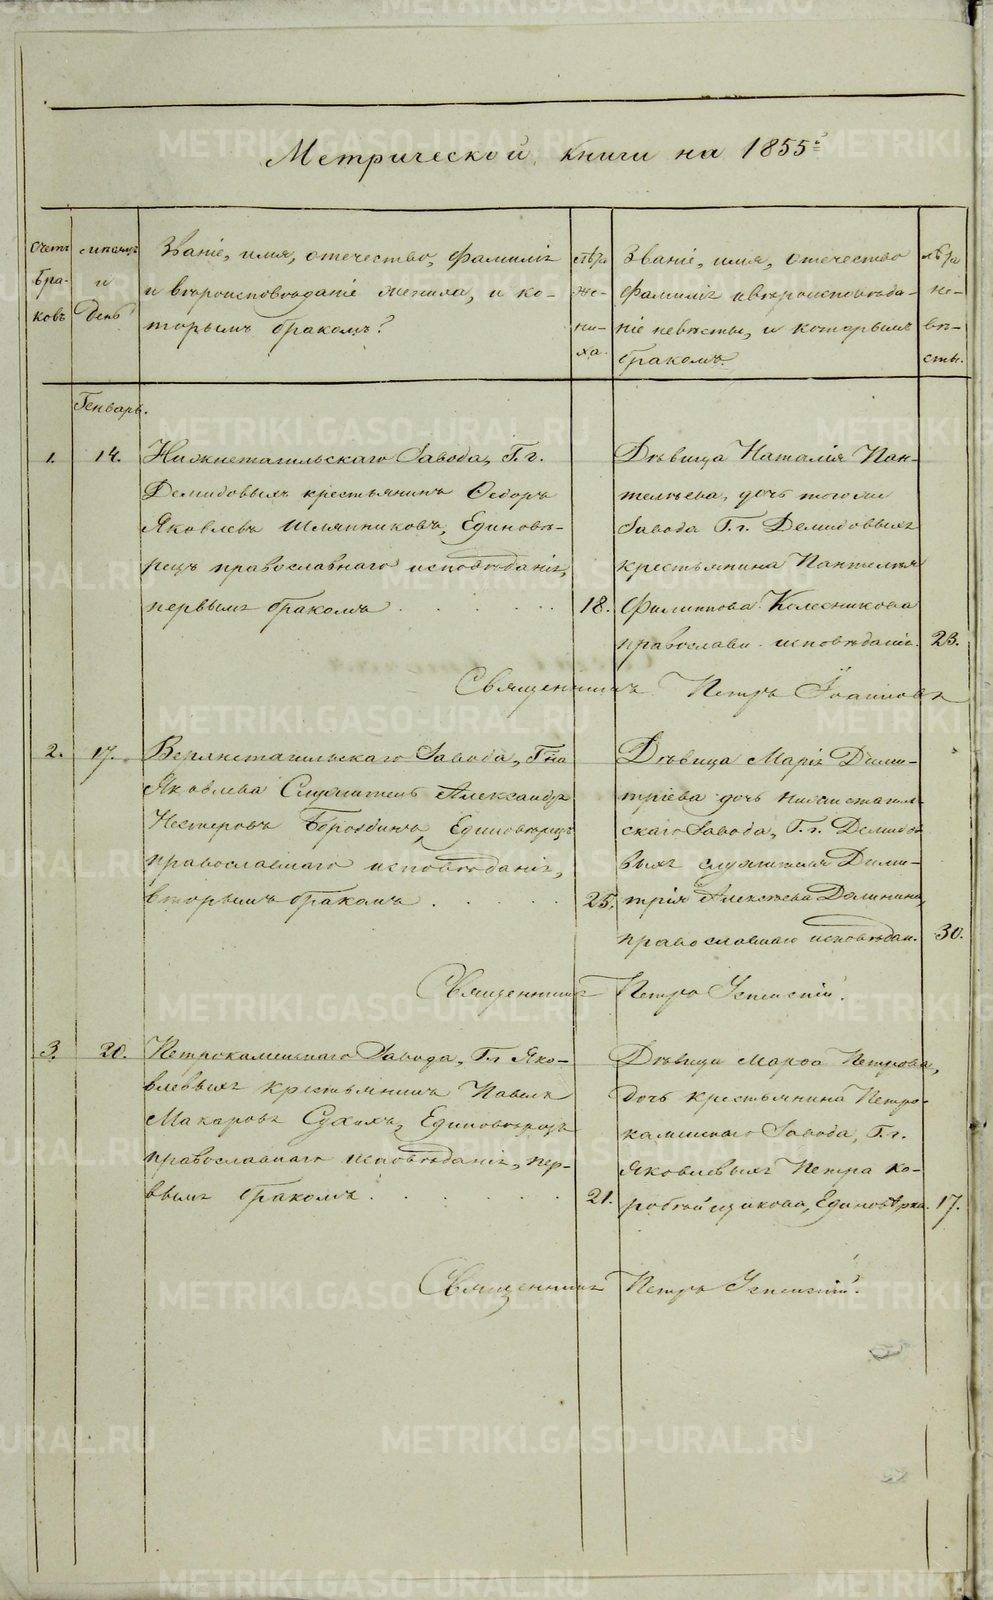 Метрической книги на 1855й
Счетъ бра-ковъ
Мѣсяцъ и день
Званіе, имя, отечество, фамилія
и вѣроисповѣданіе жениха, и ко-
торымъ бракомъ?
лѣта же-ни-ха.
Званіе, имя, отечество
фамилія и вѣроисповѣда-
ніе невѣсты, и которымъ
бракомъ.
лѣта не-вѣ-сты.
Генварь.
1. 14.
Нижнетагильскаго Завода, Г.г.
Демидовыхъ крестьянинъ Ѳедоръ
Яковлевъ Шляпниковъ, Единовѣ-
рецъ православнаго исповѣданія,
первымъ бракомъ
18.
Дѣвица Наталія Пан-
телѣева, дочь тогоже
Завода Г.г. Демидовыхъ
крестьянина Пантелѣя
Филиппова Колесникова
православн. исповѣданія.
23.
Священникъ Петръ Іоанновъ
2. 17.
Верхнетагильскаго Завода, Гна
Яковлева Служитель Александръ
Нестеровъ Бороздинъ, Единовѣрецъ
православнаго исповѣданія,
вторымъ бракомъ
25.
Дѣвица Марія Дими-
тріева дочь Нижнетагиль-
скаго Завода, Г.г. Демидо-
выхъ служителя Дими-
трія Алексѣева
православнаго исповѣдан.
30.
Священникъ Петръ Успенскій.
3. 20.
Петрокаменнаго Завода, Г.г. Яко-
влевыхъ крестьянинъ Павелъ
Макаровъ Сухихъ, Единовѣрецъ
православнаго исповѣданія, пер-
вымъ бракомъ
21.
Дѣвица Марѳа Петрова,
дочь крестьянина Петро-
каменнаго Завода, Г.г.
Яковлевыхъ Петра Ко-
робейщикова, Единовѣрка.
17.
Священникъ Петръ Успенскій.
METRIKI.GASO-URAL.RU